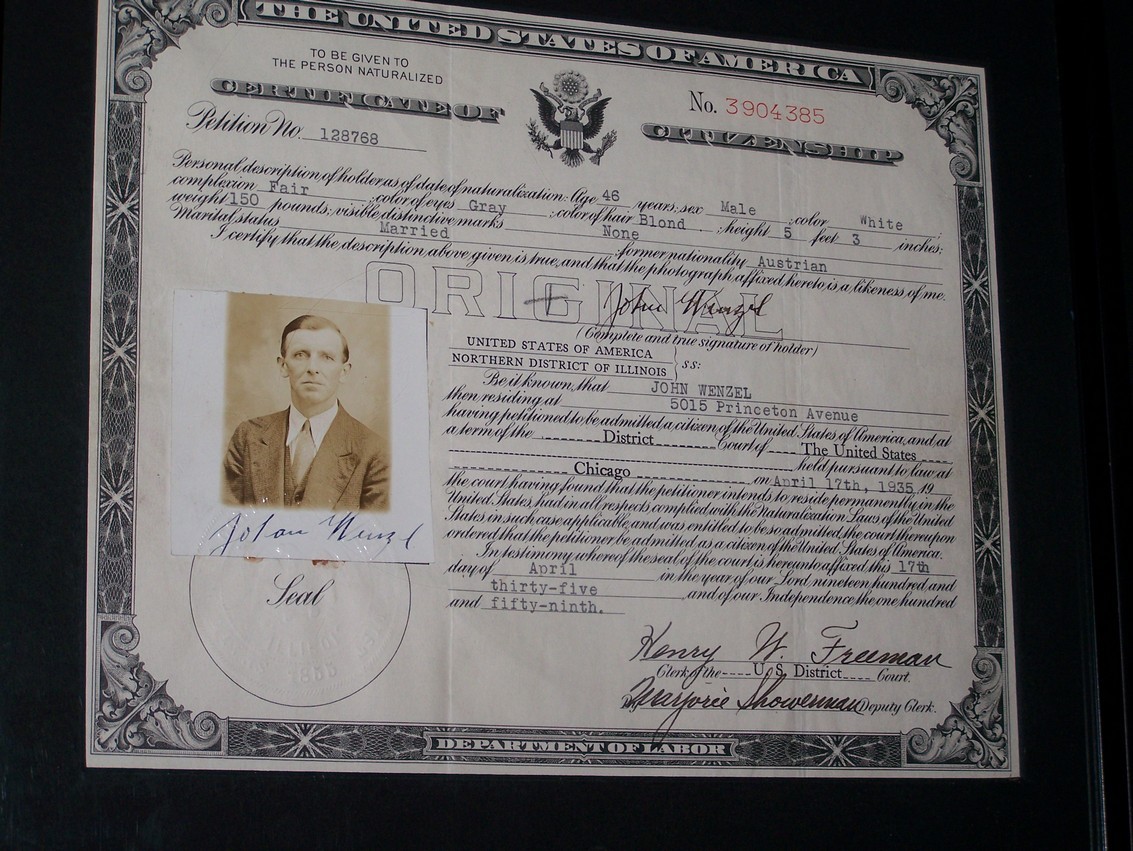 THE UNITED STATES OF AMERICA
TO BE GIVEN TO
THE PERSON NATURALIZED
CERTIFICATE OF
CITIZENSHIP
No. 3904385
Petition No. 128768
Personal description of holder as of date of naturalization: Age 46 years; sex Male ; color White ;
complexion Fair ; color of eyes Gray ; color of hair Blond ; height 5 feet 3 inches;
weight 150 pounds; visible distinctive marks None
Marital status Married ; former nationality Austrian
I certify that the description above given is true, and that the photograph affixed hereto is a likeness of me.
ORIGINAL
John Wenzel
(Complete and true signature of holder)
UNITED STATES OF AMERICA
NORTHERN DISTRICT OF ILLINOIS } ss:
Be it known, that JOHN WENZEL
then residing at 5015 Princeton Avenue
having petitioned to be admitted a citizen of the United States of America, and at
a term of the District Court of The United States
held pursuant to law at
Chicago on April 17th, 1935 19
the court having found that the petitioner intends to reside permanently in the
United States, had in all respects complied with the Naturalization Laws of the United
States in such case applicable, and was entitled to be so admitted, the court thereupon
ordered that the petitioner be admitted as a citizen of the United States of America.
In testimony whereof the seal of the court is hereunto affixed this 17th
day of April in the year of our Lord nineteen hundred and
thirty-five and of our Independence the one hundred
and fifty-ninth.
Johan Wenzel
Seal
1855
Henry W. Freeman
Clerk of the U. S. District Court.
By Marjorie Showerman Deputy Clerk.
DEPARTMENT OF LABOR